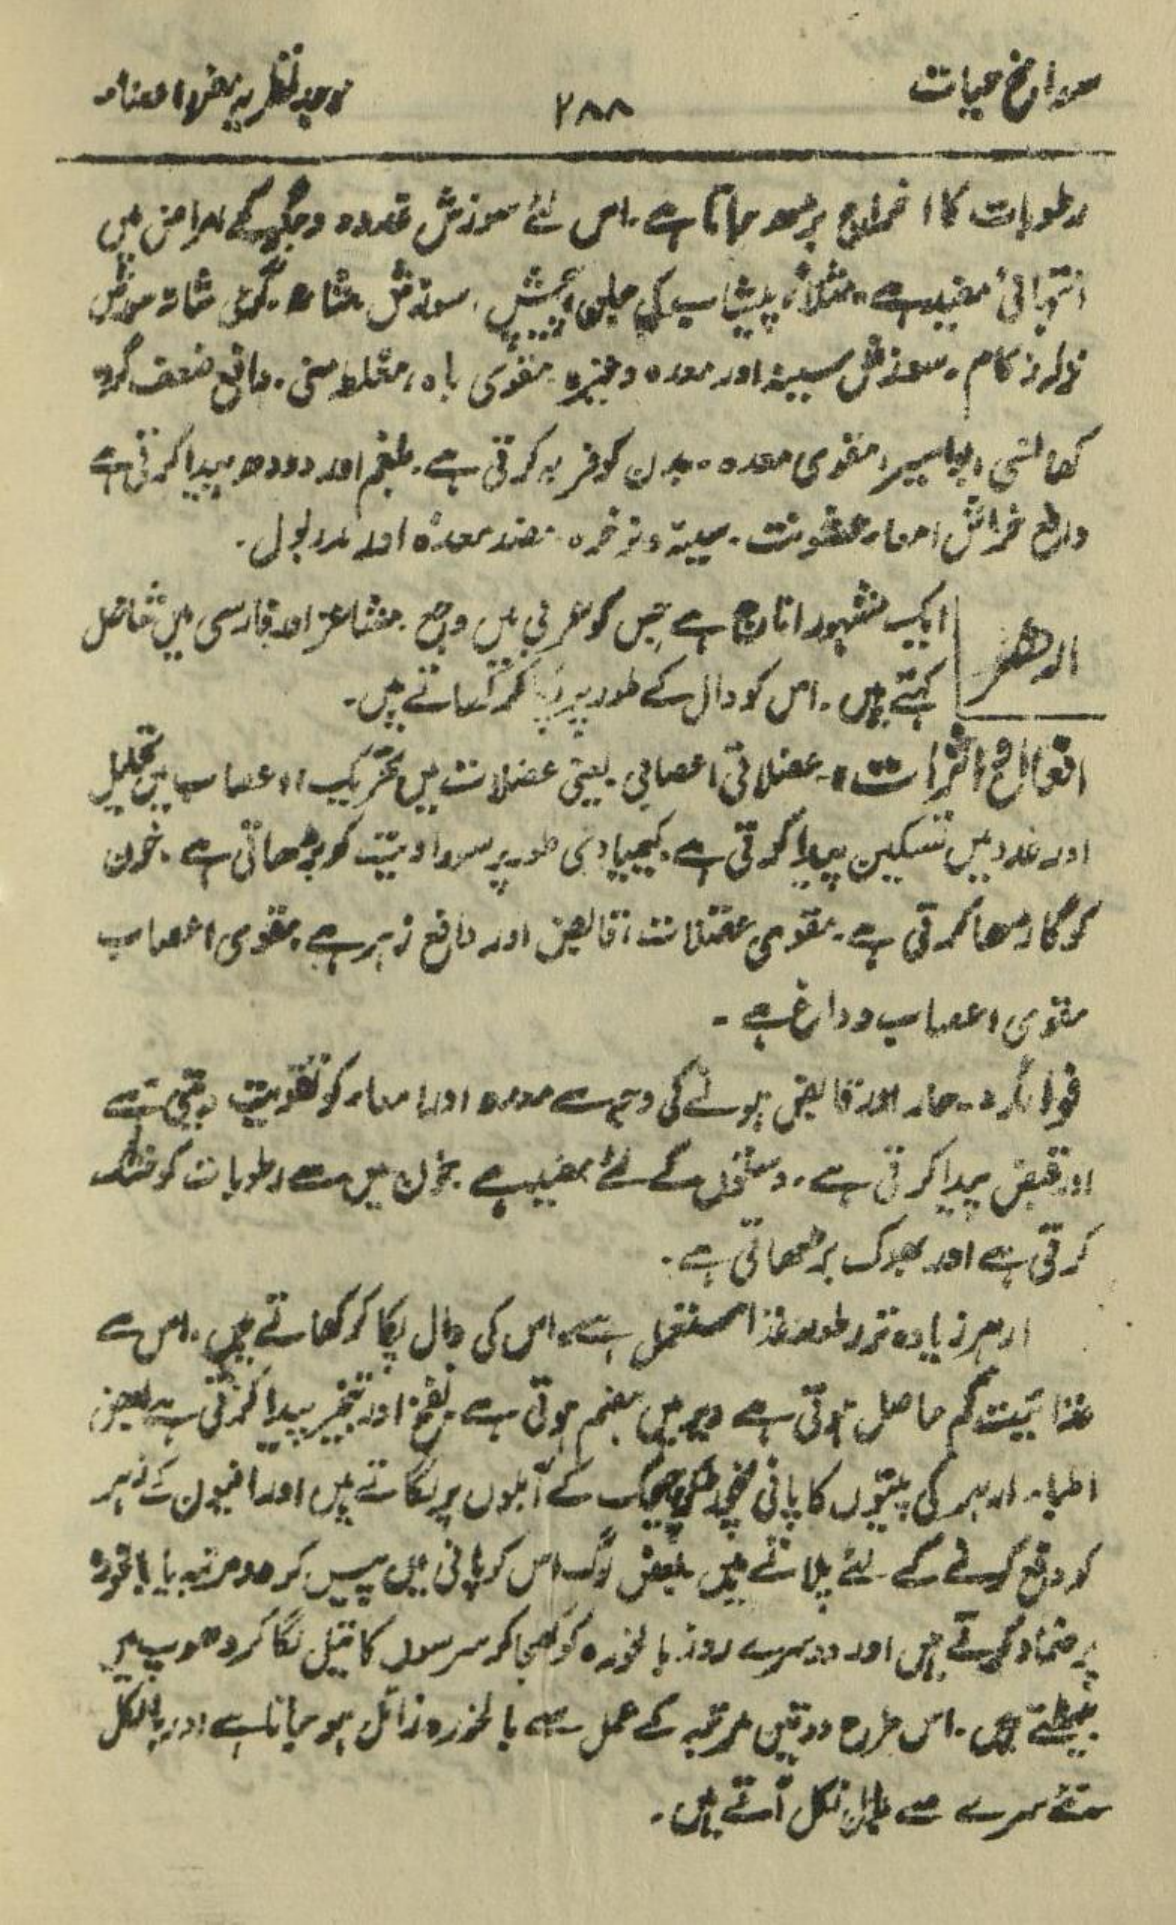 سوانح حیات ۲۸۸ موجد نظریہ مفرد اعضاء
رطوبات کا اخراج بڑھ جاتا ہے۔ اس لئے سوزش غدد و جگر کے امراض میں
انتہائی مفید ہے۔ مثلاً پیشاب کی جلن، پیچش، سوزش مثانہ، گرمی مثانہ سوزش
نزلہ زکام۔ سوزش سینہ اور معدہ وغیرہ مقوی باہ، مغلظ منی۔ دافع ضعف گردہ
کھانسی، بواسیر، مقوی معدہ۔ بدن کو فربہ کرتی ہے۔ بلغم اور دودھ پیدا کرتی ہے
دافع خراش امعاء عفونت۔ سینہ و نرخرہ معدہ اور مدر بول۔
ارھر
ایک مشہور اناج ہے جس کو عربی میں وجع۔ اور فارسی میں شاخل
کہتے ہیں۔ اس کو دال کے طور پر پکا کر کھاتے ہیں۔
افعال و اثرات:۔ عضلاتی اعصابی۔ یعنی عضلات میں تحریک، اعصاب میں تحلیل
اور غدد میں تسکین پیدا کرتی ہے۔ کیمیاوی طور پر سوداویت کو بڑھاتی ہے۔ خون
کو گاڑھا کرتی ہے۔ مقوی عضلات، قابض اور دافع زہر ہے۔ مقوی اعصاب
مقوی اعصاب و دماغ ہے۔
فوائد:۔ حار اور قابض ہونے کی وجہ سے معدہ اور امعاء کو تقویت دیتی ہے
اور قبض پیدا کرتی ہے۔ دستوں کے لئے مفید ہے۔ خون میں سے رطوبات کو خشک
کرتی ہے اور بھوک بڑھاتی ہے۔
ارہر زیادہ تر بطور غذا مستعمل ہے، اس کی دال پکا کر کھاتے ہیں۔ اس سے
غذائیت کم حاصل ہوتی ہے دیر میں ہضم ہوتی ہے۔ نفخ اور تبخیر پیدا کرتی ہے۔ بعض
اطباء ارہر کی پتیوں کا پانی چیچک کے آبلوں پر لگاتے ہیں اور افیون کے زہر
کو دفع کرنے کے لئے پلاتے ہیں۔ بعض لوگ اس کو پانی میں پیس کر دو مرتبہ بالخورہ
پر ضماد کرتے ہیں اور دوسرے روز بالخورہ کو کھجا کر سرسوں کا تیل لگا کر دھوپ میں
بیٹھتے ہیں۔ اس طرح دو تین مرتبہ کے عمل سے بالخورہ زائل ہو جاتا ہے اور بالکل
نئے سرے سے بال نکل آتے ہیں۔